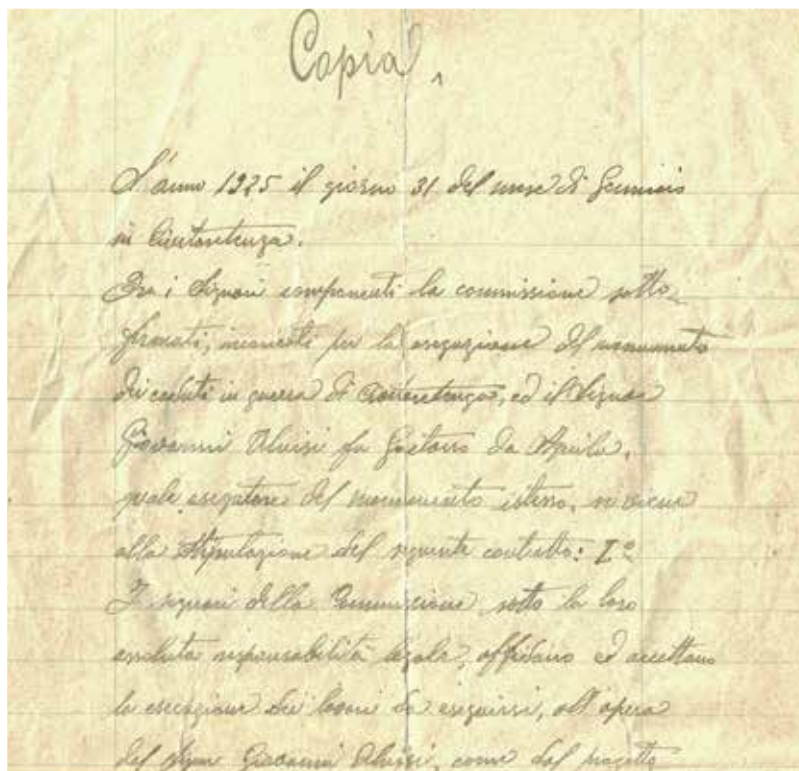 Copia
L'anno 1925 il giorno 31 del mese di Gennaio
in Civitaretenga.
Fra i Signori componenti la commissione sotto
firmati, incaricati per la esecuzione del monumento
dei caduti in guerra di Civitaretenga, ed il Signor
Giovanni Aluisi fu Gaetano da Aquila,
quale esecutore del monumento istesso, si viene
alla stipulazione del seguente contratto: I°
I signori della Commissione, sotto la loro
assoluta responsabilità legale, affidano ed accettano
la esecuzione dei lavori da eseguirsi, all'opera
del Signor Giovanni Aluisi, come dal progetto